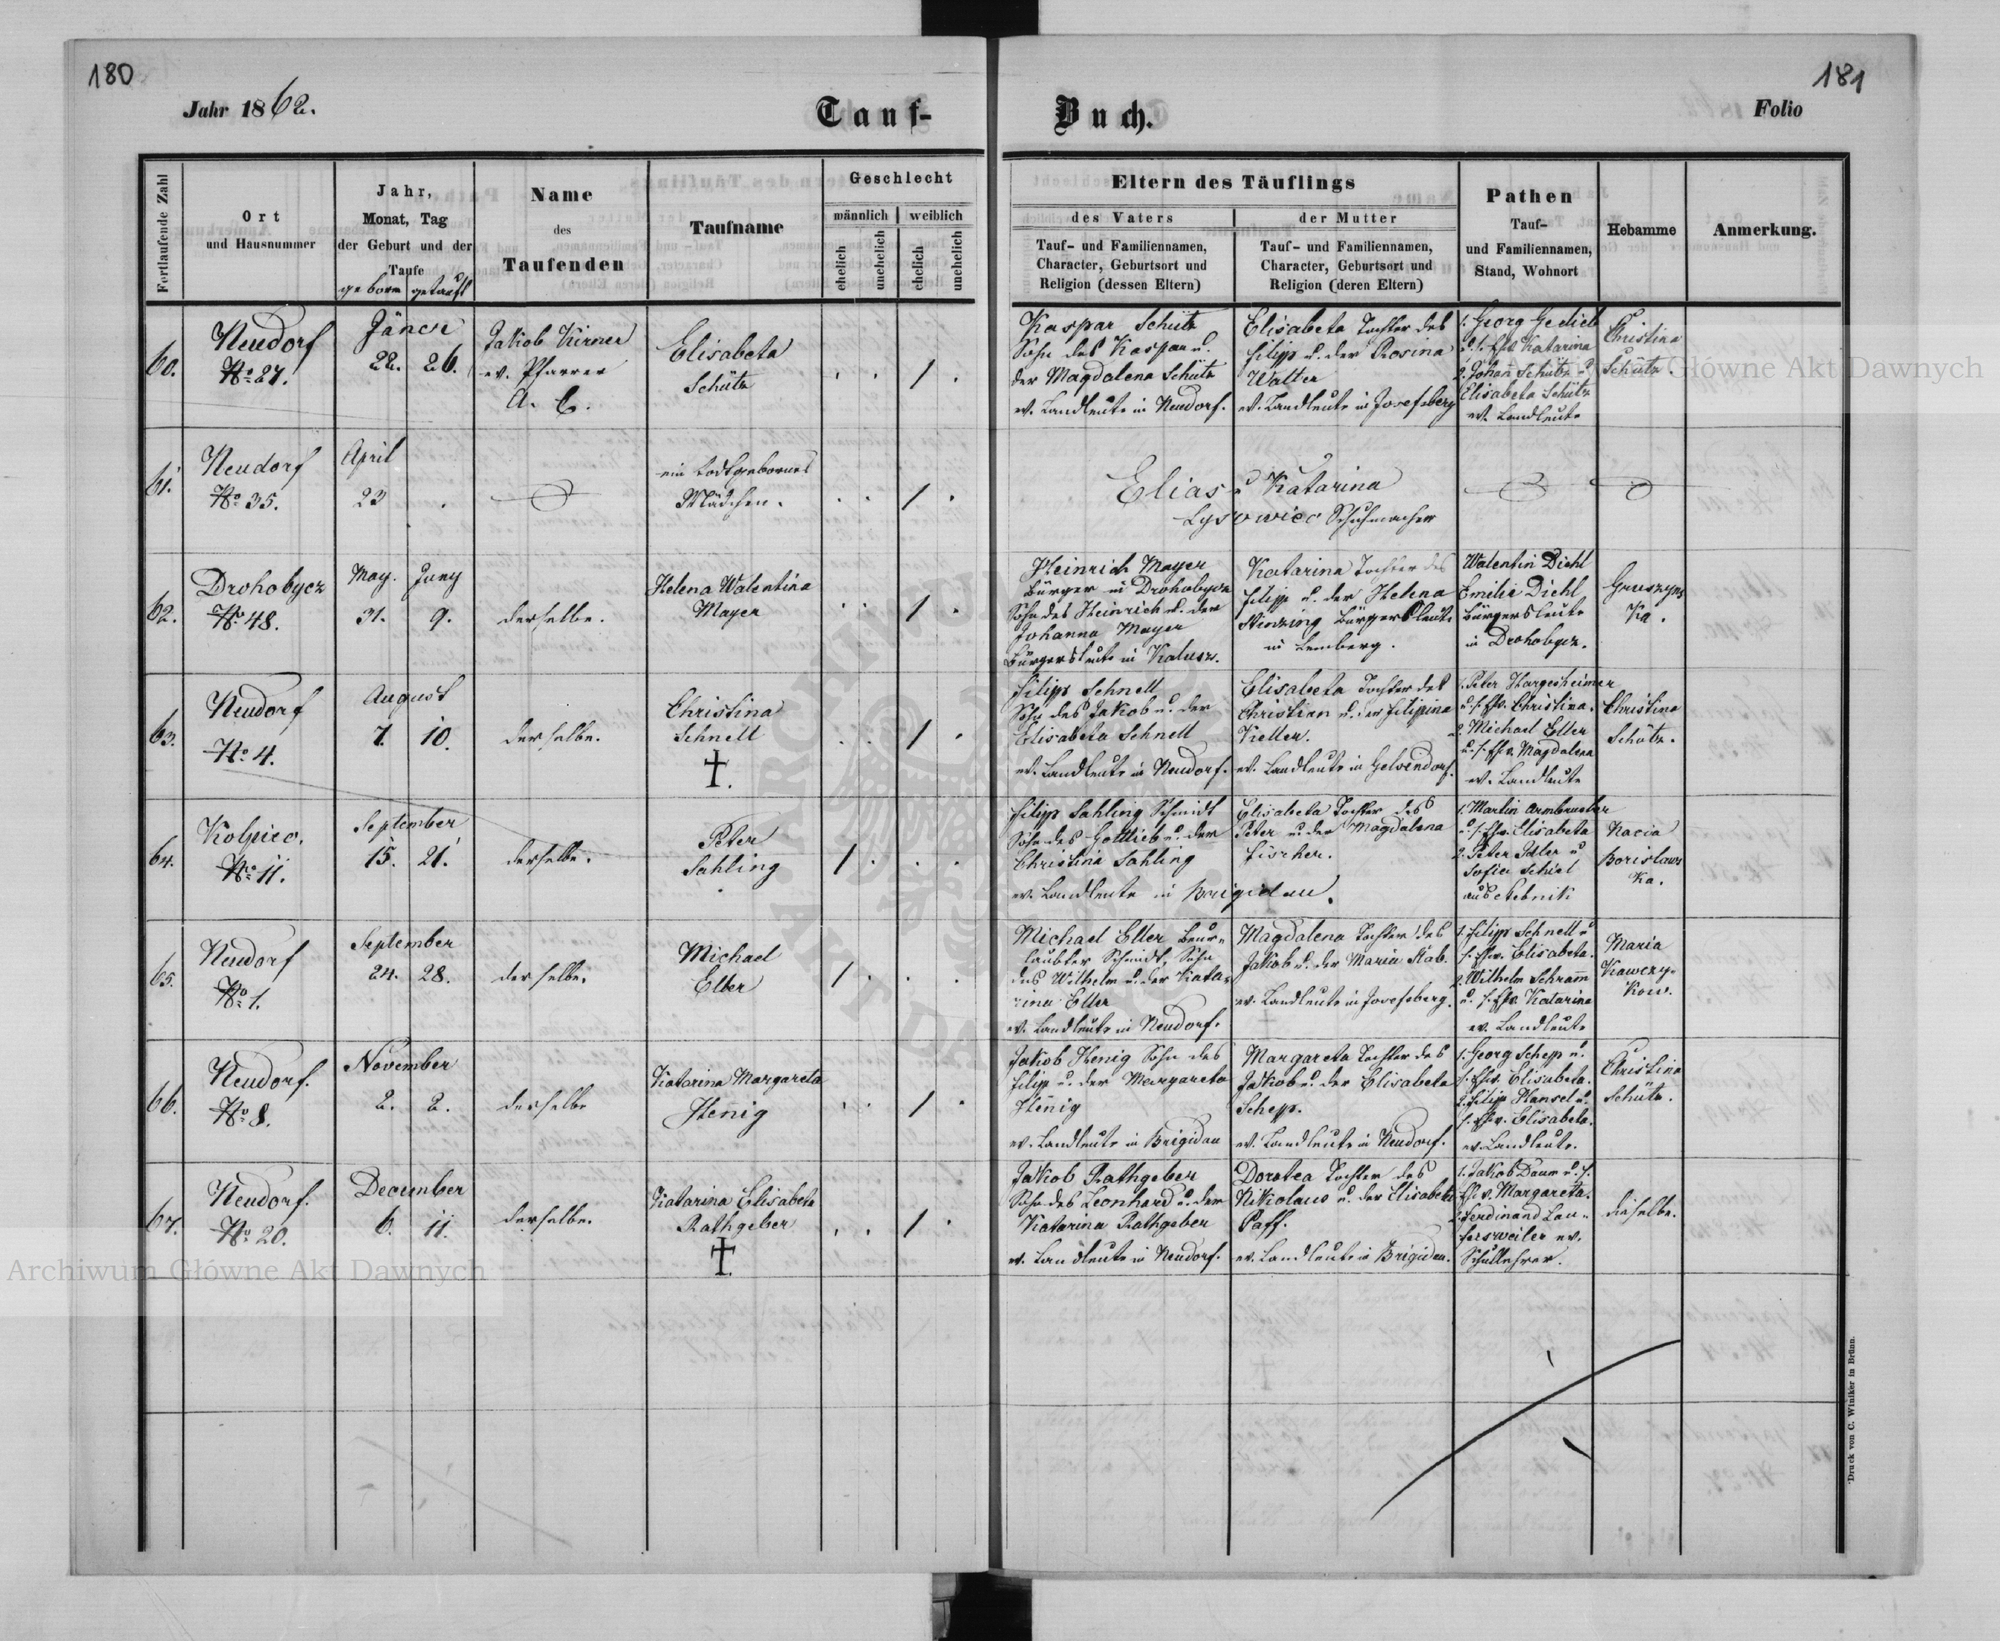 180
181
Jahr 1862.
Tauf-
Buch.
Folio
Fortlaufende Zahl
Ort
und Hausnummer
Jahr,
Monat, Tag
der Geburt und der
Taufe
geboren getauft
Name
des
Taufenden
Taufname
Geschlecht
männlich
weiblich
ehelich
unehelich
ehelich
unehelich
Eltern des Täuflings
des Vaters
der Mutter
Tauf- und Familiennamen,
Character, Geburtsort und
Religion (dessen Eltern)
Tauf- und Familiennamen,
Character, Geburtsort und
Religion (deren Eltern)
Pathen
Tauf-
und Familiennamen,
Stand, Wohnort
Hebamme
Anmerkung.
60.
Neudorf
No 27.
Jänner
22. 26.
Jakob Kirner
ev. Pfarrer
A. C.
Elisabeta
Schütz
Kaspar Schütz
Sohn des Kaspar u.
der Magdalena Schütz
ev. Landleute in Neudorf.
Elisabeta Tochter des
Filipp u. der Rosina
Walter
ev. Landleute in Josefsberg
1. Georg
Katarina
2. Johan Schütz u
Elisabeta Schütz
ev. Landleute
Christina
Schütz.
61.
Neudorf
No 35.
April
23 .
ein todtgebornes
Mädchen.
Elias u Katarina
Lysowiec Schuhmacher
62.
Drohobycz
No 48.
May. Juny
31. 9.
derselbe.
Helena Walentina
Mayer
Heinrich Mayer
Bürger in Drohobycz
Sohn des Heinrich u. der
Johanna Mayer
Bürgersleute in Kalusz.
Katarina Tochter des
Filipp u. der Helena
Bürgersleute
in Lemberg.
Walentin Diehl
Emilie Diehl
Bürgersleute
in Drohobycz.
Gruszyns
Ka.
63.
Neudorf
No 4.
August
7. 10.
derselbe.
Christina
Schnell
†.
Filipp Schnell
Sohn des Jakob u. der
Elisabeta Schnell
ev. Landleute in Neudorf.
Elisabeta Tochter des
Christian u. der Filipina
Keller.
ev. Landleute in Gelsendorf.
1. Peter Hargesheimer
Christina.
2. Michael Eller
Magdalena
ev. Landleute
Christina
Schütz.
64.
Kolpiec.
No 11.
September
15. 21.
derselbe.
Peter
Sahling
Filipp Sahling Schmidt
Sohn des Gottlieb u. der
Christina Sahling
ev. Landleute in Brigidau.
Elisabeta Tochter des
Peter u. der Magdalena
Fischer.
1. Martin Armbruster
Elisabeta
2. Peter Adler u
Sofia
aus
Kacia
Borislaws
Ka.
65.
Neudorf
No 1.
September
24. 28.
derselbe.
Michael
Eller
Michael Eller beur-
laubter Schmidt, Sohn
des Wilhelm u. der Kata-
rina Eller
ev. Landleute in Neudorf.
Magdalena Tochter des
Jakob u. der Maria Rab.
ev. Landleute in Josefsberg.
1. Filipp Schnell u
Elisabeta.
2. Wilhelm Schram̄
Katarina
ev. Landleute
Maria
Kawczy-
Kow.
66.
Neudorf.
No 8.
November
2. 2.
derselbe
Katarina Margareta
Heñig
Jakob Henig Sohn des
Filip u. der Margareta
Heñig
ev. Landleute in Brigidau
Margareta Tochter des
Jakob u. der Elisabeta
Schepp.
ev. Landleute in Neudorf.
1. Georg Schepp u.
Elisabeta.
2. Filipp Hansel u.
Elisabeta.
ev. Landleute.
Christina
Schütz.
67.
Neudorf.
No 20.
December
6. 11.
derselbe.
Katarina Elisabeta
Rathgeber
†.
Jakob Rathgeber
Sohn des Leonhard u. der
Katarina Rathgeber
ev. Landleute in Neudorf.
Dorotea Tochter des
Nikolaus u. der Elisabeta
Paff.
ev. Landleute in Brigidau.
1. Jakob Daum u. s.
Margareta.
2. Ferdinand Lau-
fersweiler ev.
Schullehrer.
dieselbe.
Archiwum Główne Akt Dawnych
Druck von C. Winiker in Brünn.